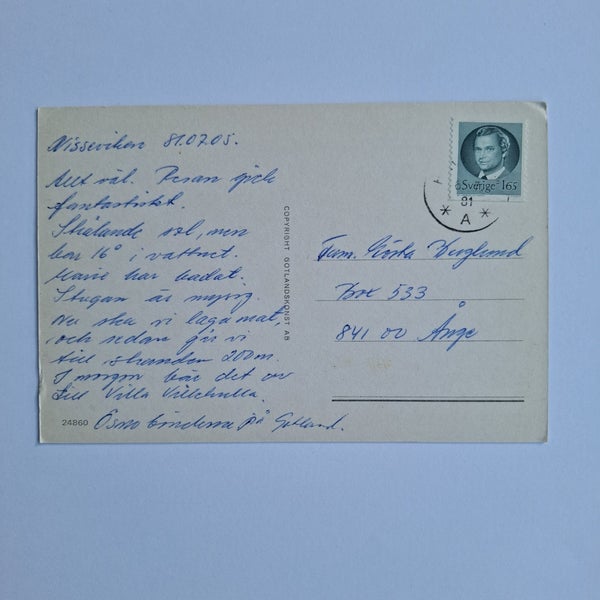 Nisseviken 81.07.05.
Allt väl. Resan gick
fantastiskt.
Strålande sol, men
bar 16° i vattnet.
har badat.
Stugan är mysig.
Nu ska vi laga mat,
och sedan går vi
till stranden 200m.
I morgon bär det av
till Villa Villekulla.
på Gotland.
24860
COPYRIGHT GOTLANDSKONST AB
Sverige 165
81
* A *
Fam. Gösta Berglund
Box 533
841 00 Ånge